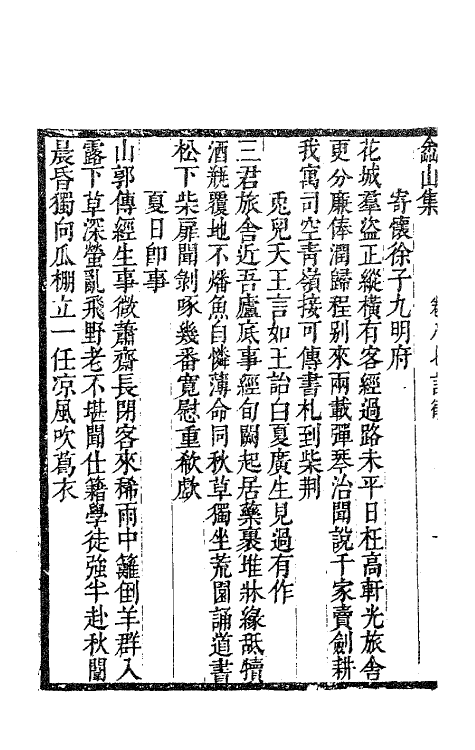 嵞山集
寄懷徐子九明府
花城羣盜正縱橫有客經過路未平日枉高軒光旅舍
更分廉俸潤歸程别來兩載彈琴治聞說千家賣劍耕
我寓司空靑嶺接可傳書札到柴荆
兎兒天王言如王詒白夏廣生見過有作
三君旅舍近吾廬底事經旬闕起居藥裹堆牀緣舐犢
酒甁覆地不燔魚自憐薄命同秋草獨坐荒園誦道書
松下柴扉聞剝啄幾番寬慰重欷歔
夏日卽事
山郭傳經生事微蕭齋長閉客來稀雨中籬倒羊群入
露下草深螢亂飛野老不堪聞仕籍學徒強半赴秋闈
晨昏獨向瓜棚立一任凉風吹葛衣